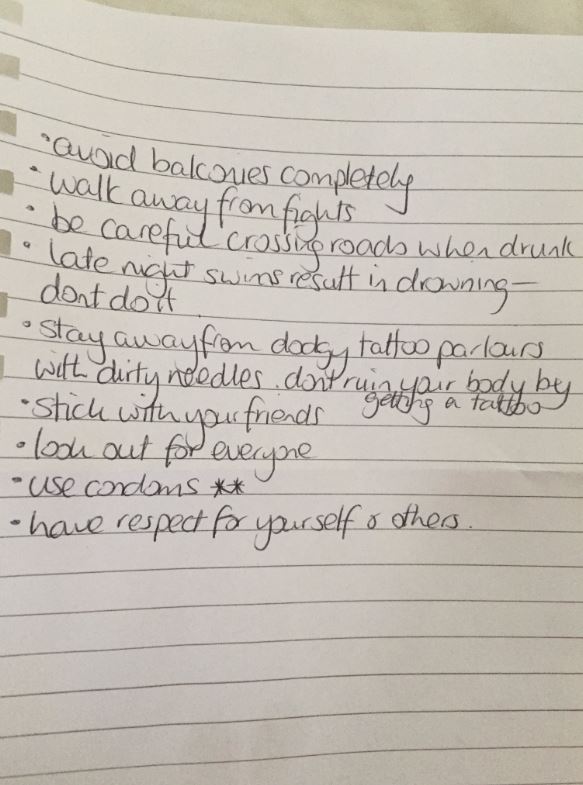 • avoid balconies completely
• walk away from fights
• be careful crossing roads when drunk
• late night swims result in drowning—
dont do it
• stay away from dodgy tattoo parlours
with dirty needles. dont ruin your body by
getting a tattoo
• stick with your friends
• look out for everyone
• use condoms **
• have respect for yourself & others.